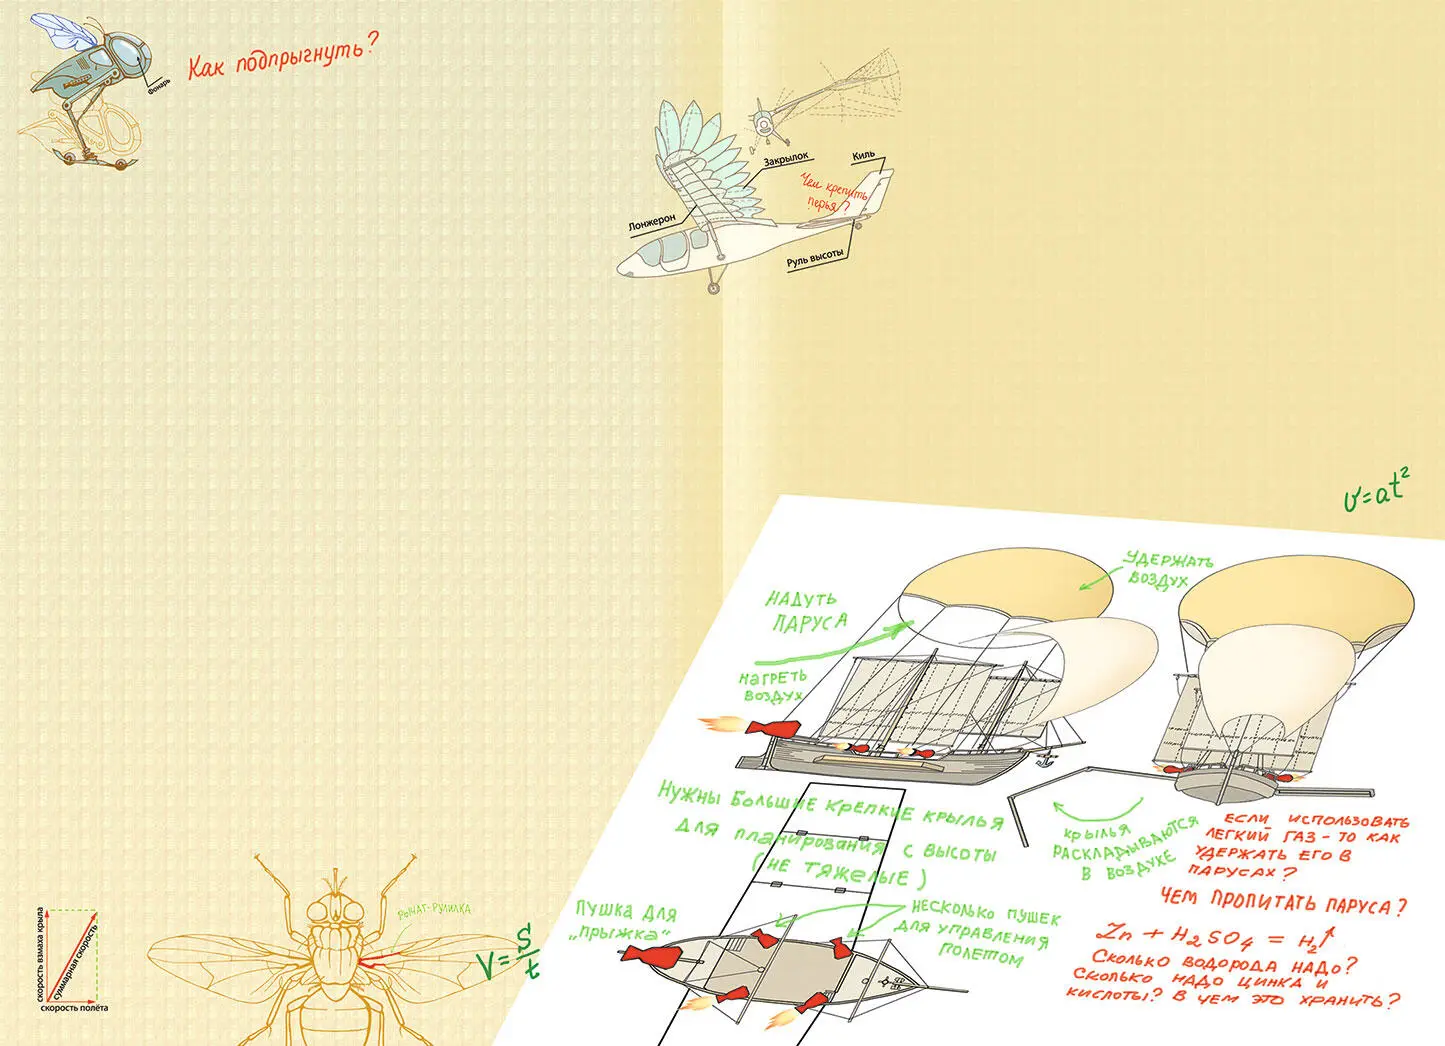 Как подпрыгнуть?
фонарь
Закрылок
Киль
Чем крепить
перья?
Лонжерон
Руль высоты
v=at²
удержать
воздух
надуть
паруса
нагреть
воздух
Нужны большие крепкие крылья
для планирования с высоты
(не тяжелые)
крылья
раскладываются
в воздухе
если использовать
легкий газ - то как
удержать его в
парусах?
чем пропитать паруса?
Zn + H₂SO₄ = H₂↑
Сколько водорода надо?
Сколько надо цинка и
кислоты? В чем это хранить?
Пушка для
„прыжка“
несколько пушек
для управления
полетом
рычаг-рулилка
V = S/t
скорость взмаха крыла
суммарная скорость
скорость полёта